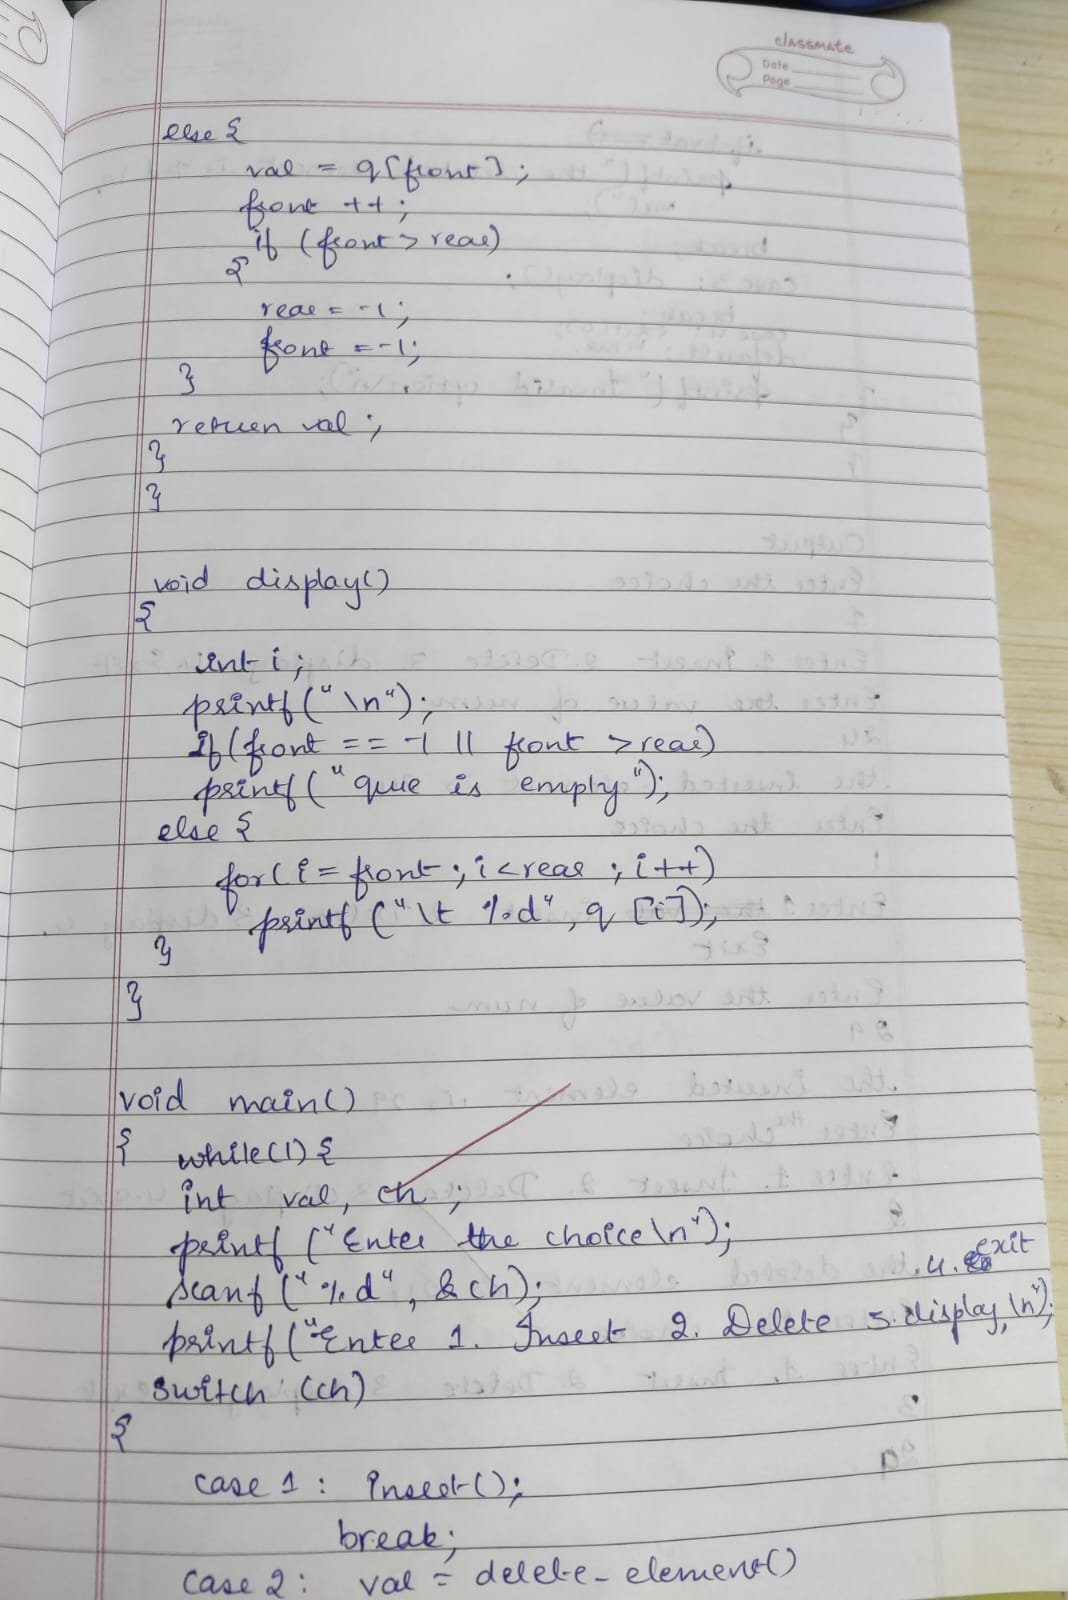 classmate
Date
Page
else {
val = q[front];
front ++;
if (front > rear)
{
rear = -1;
front = -1;
}
return val;
}
}
void display()
{
int i;
printf("\n");
if(front == -1 || front > rear)
printf("que is empty");
else {
for(i = front; i < rear; i++)
printf("\t %d", q[i]);
}
}
void main()
{ while(1) {
int val, ch;
printf("Enter the choice\n");
scanf("%d", &ch);
4. exit
printf("Enter 1. Insert 2. Delete 3. display, \n");
switch (ch)
{
case 1: insert();
break;
case 2: val = delete_element()